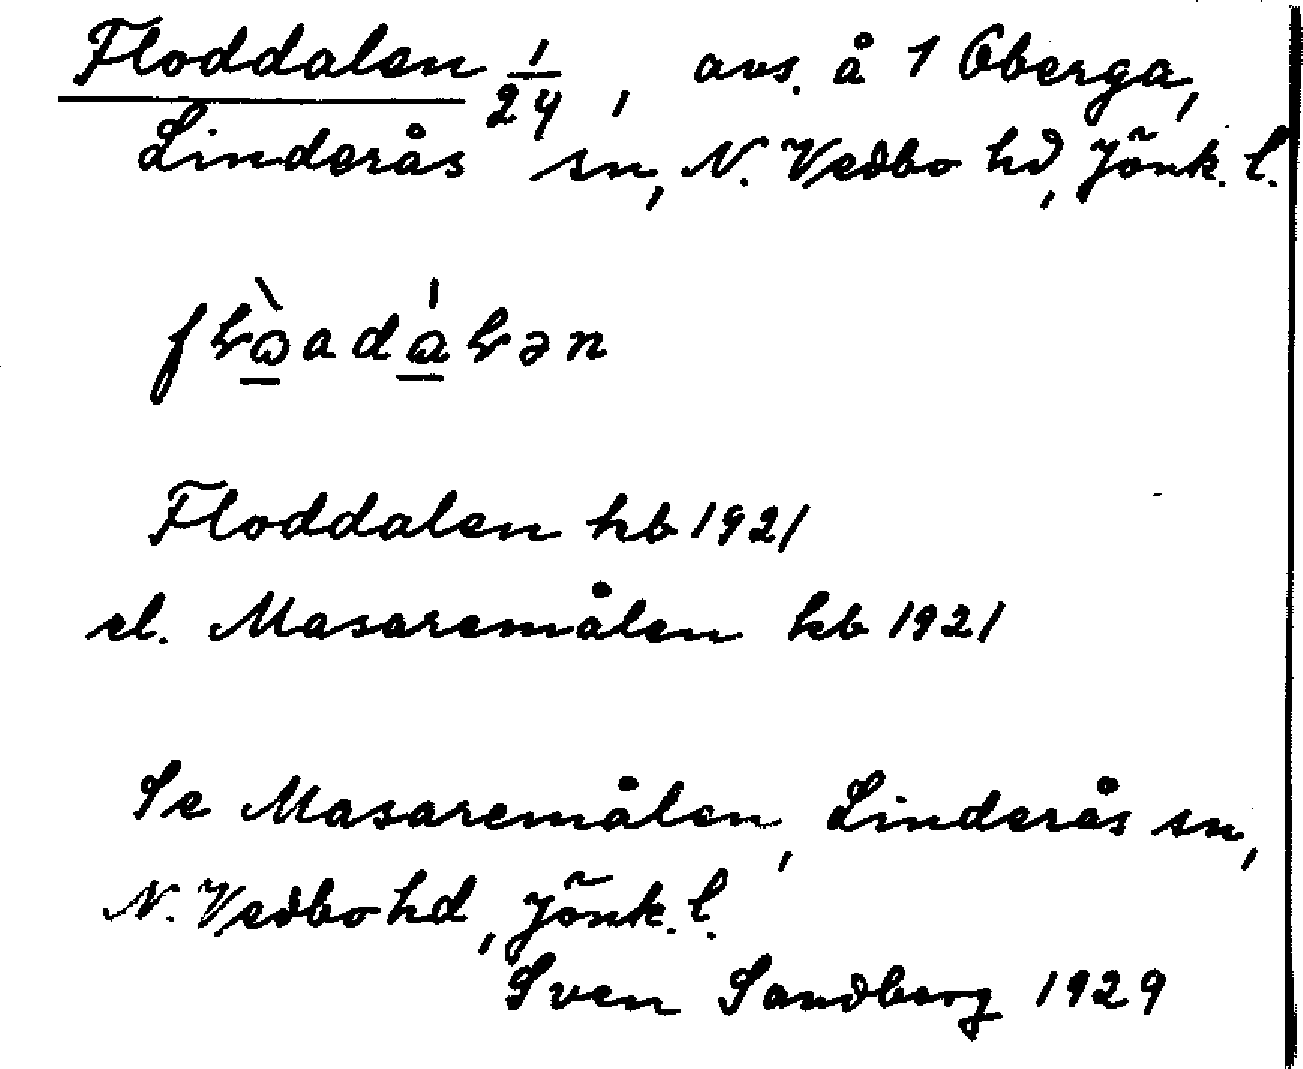 Floddalen 1/24, avs. å 1 Öberga,
Linderås sn, N. Vedbo hd, Jönk. l.
Floddalen kb 1921
el. Masaremålen kb 1921
Se Masaremålen, Linderås sn,
N. Vedbo hd, Jönk. l.
Sven Sandberg 1929